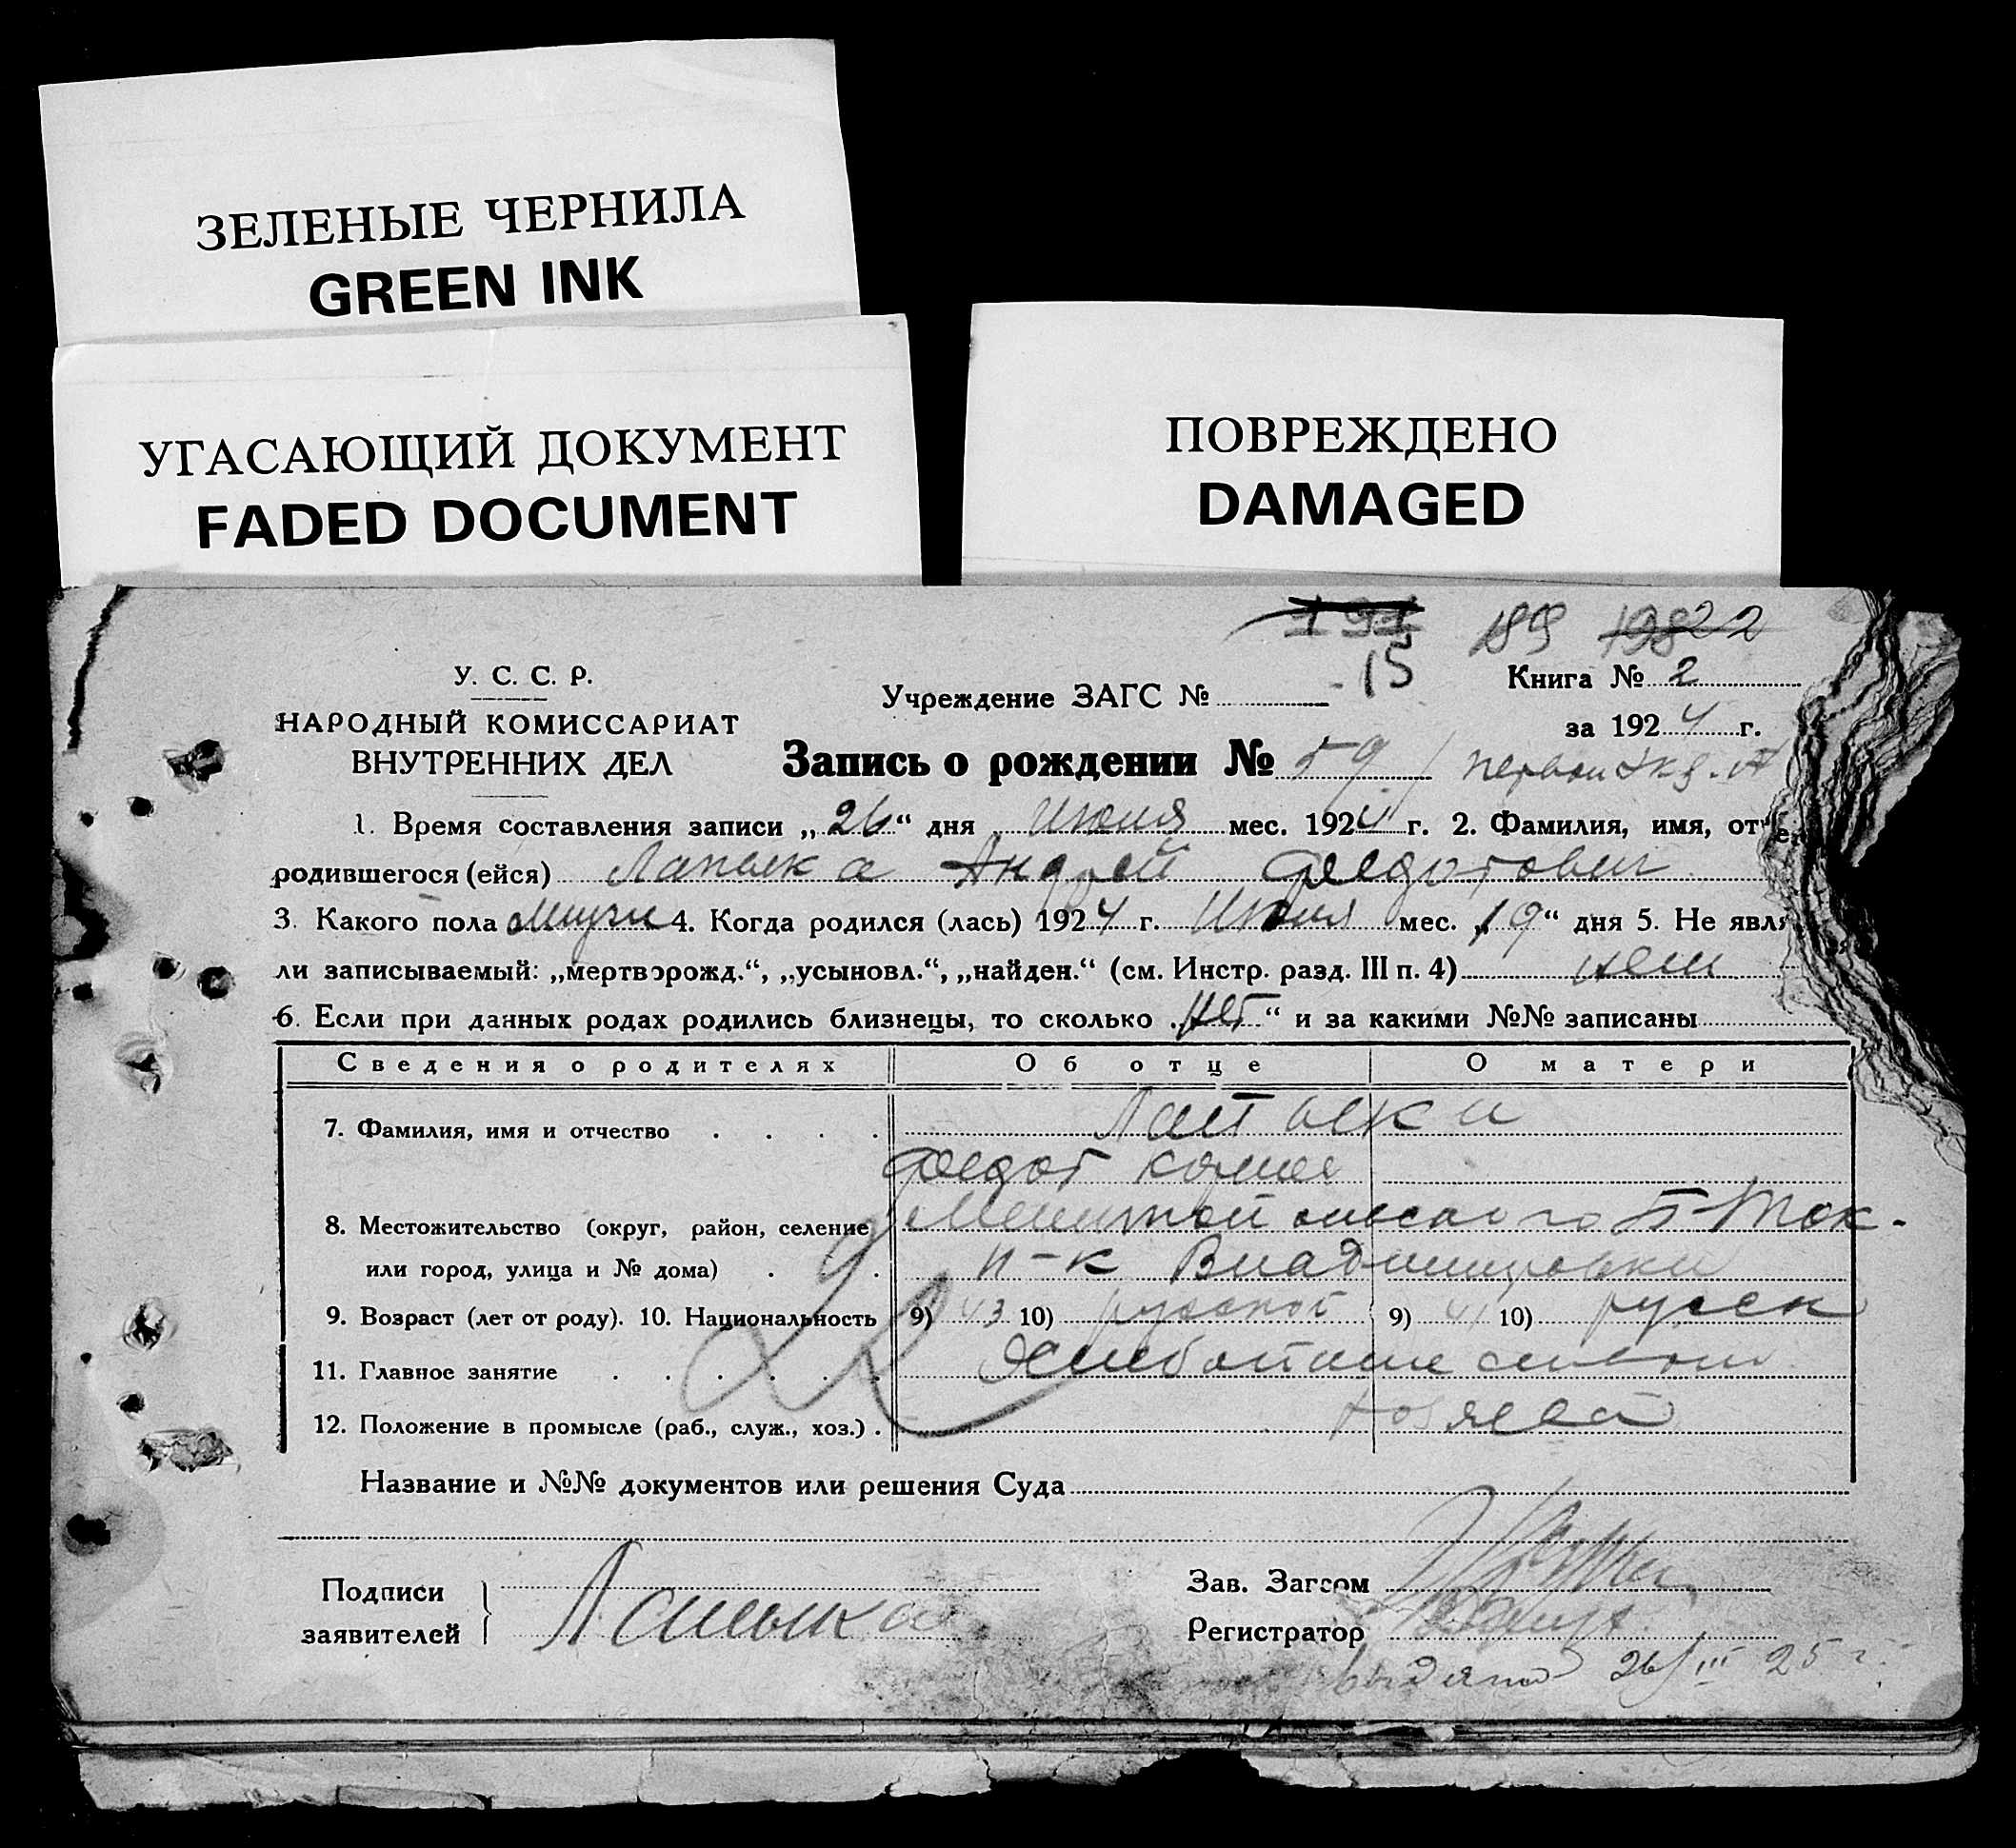 ЗЕЛЕНЫЕ ЧЕРНИЛА
GREEN INK
УГАСАЮЩИЙ ДОКУМЕНТ
FADED DOCUMENT
ПОВРЕЖДЕНО
DAMAGED
189 19822
У. С. С. Р.
НАРОДНЫЙ КОМИССАРИАТ
ВНУТРЕННИХ ДЕЛ
Учреждение ЗАГС № 15
Книга № 2
за 1924 г.
Запись о рождении № 59
1. Время составления записи „26“ дня Июня мес. 1924 г. 2. Фамилия, имя, отче
родившегося (ейся) Лапыка Андрей Федотович
3. Какого пола мужс 4. Когда родился (лась) 1924 г. Июня мес. „19“ дня 5. Не явля
ли записываемый: „мертворожд.“, „усыновл.“, „найден.“ (см. Инстр. разд. III п. 4) нет
6. Если при данных родах родились близнецы, то сколько „нет“ и за какими №№ записаны
Сведения о родителях Об отце О матери
7. Фамилия, имя и отчество Лапыка
Федот
8. Местожительство (округ, район, селение Б-Ток-
или город, улица и № дома) Владимировка
9. Возраст (лет от роду). 10. Национальность 9) 43 10) русской 9) 41 10) русск
11. Главное занятие
12. Положение в промысле (раб., служ., хоз.) хозяева
Название и №№ документов или решения Суда
Подписи
заявителей Лапыка
Зав. Загсом
Регистратор
выдано 26/III 25 г.